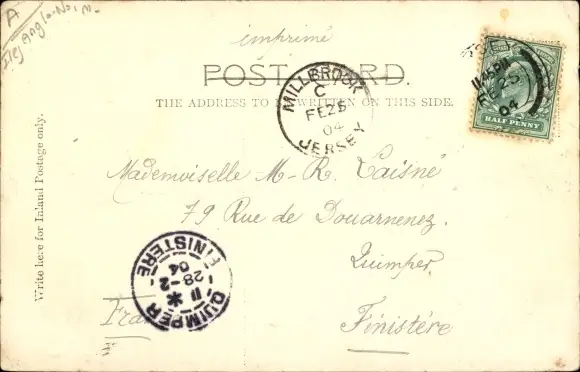 A
Iles Anglo-Norm.
imprimé
POST CARD.
THE ADDRESS TO BE WRITTEN ON THIS SIDE.
Write here for Inland Postage only.
MILLBROOK
C
FE 25
04
JERSEY
JERSEY
11.45PM
FE 25
04
HALF PENNY
Mademoiselle M-R. Caisné
79 Rue de Douarnenez.
Quimper.
Finistère
France
QUIMPER
*
11
28-2
04
FINISTERE